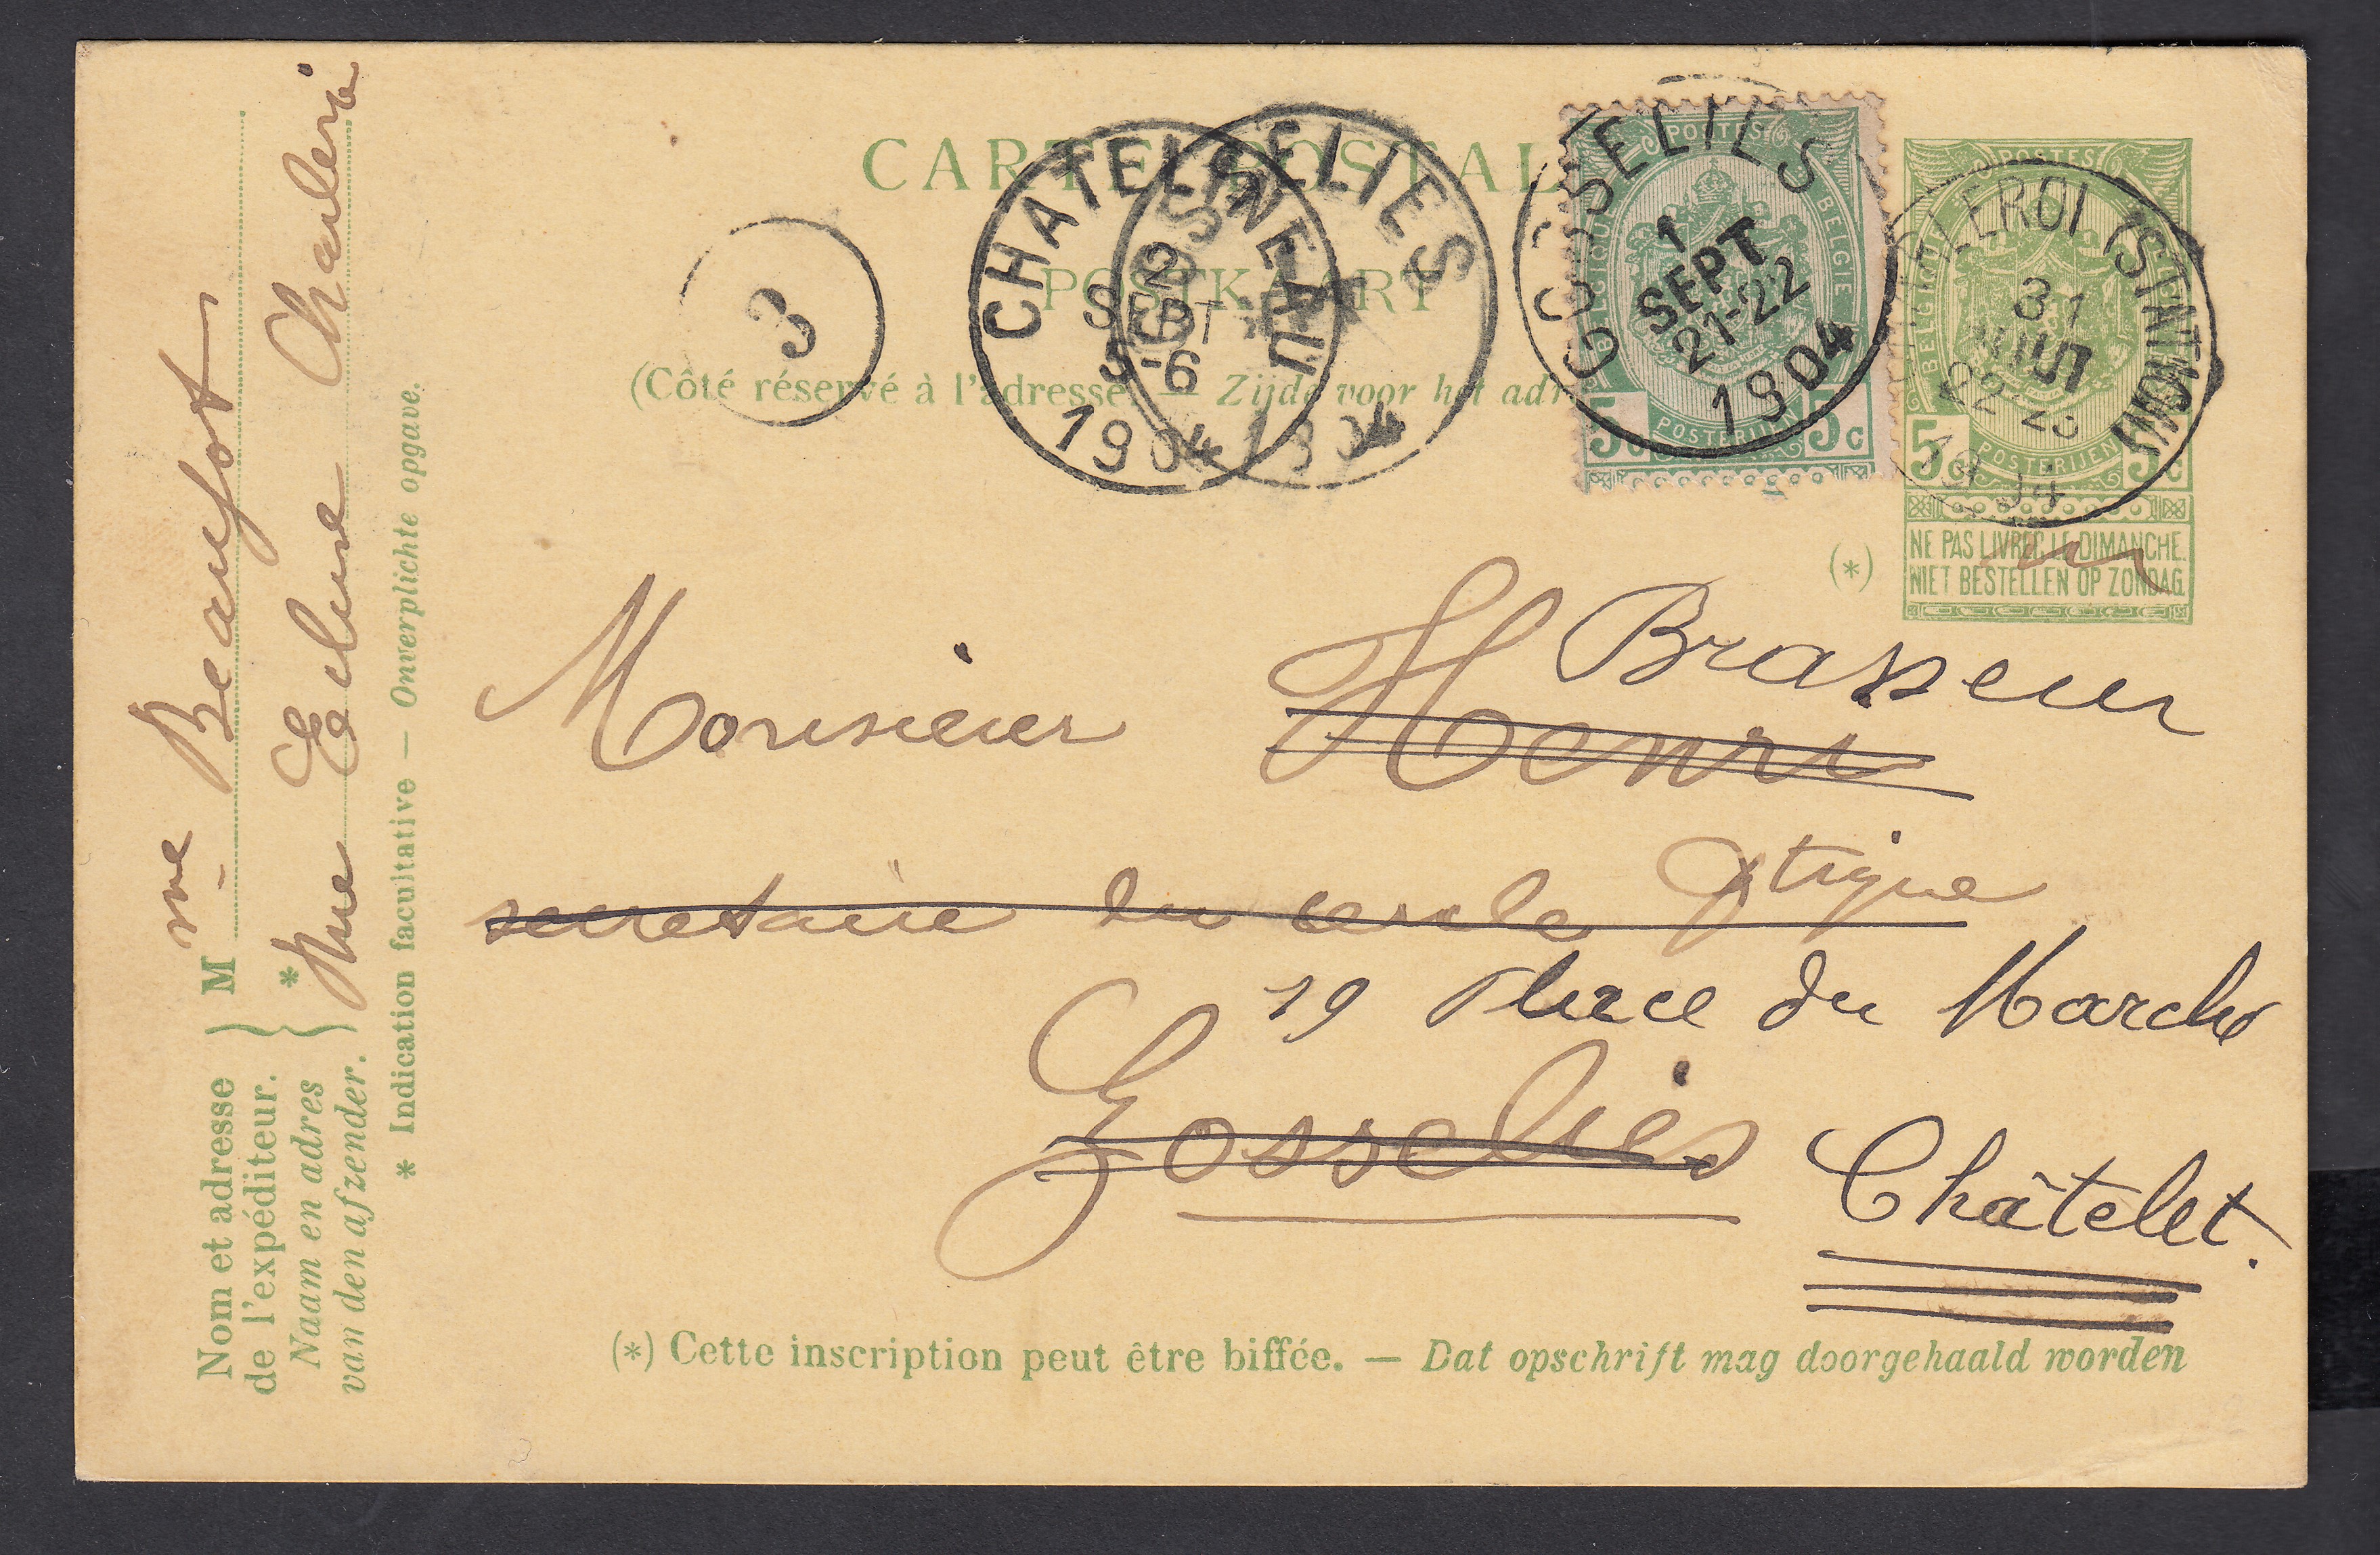 CARTE POSTAL
POSTKAART
(Côté réservé à l'adresse — Zijde voor het adr
3
CHATELINEAU
2
SEPT
5-6
1904
GOSSELIES
1904
GOSSELIES
1
SEPT
21-22
1904
POSTES
BELGIQUE
BELGIE
5c
POSTERIJEN
5c
CHARLEROI (STATION)
31
AOUT
22-23
1904
POSTES
BELGIQUE
BELGIE
5c
POSTERIJEN
5c
(*)
NE PAS LIVRER LE DIMANCHE.
NIET BESTELLEN OP ZONDAG.
Monsieur Henri Brasseur
secretaire du cercle
19 Place du Marché
Gosselies
Châtelet.
(*) Cette inscription peut être biffée. — Dat opschrift mag doorgehaald worden
Nom et adresse
de l'expéditeur.
Naam en adres
van den afzender.
M me Beaufort
* Rue Charleroi
* Indication facultative — Onverplichte opgave.